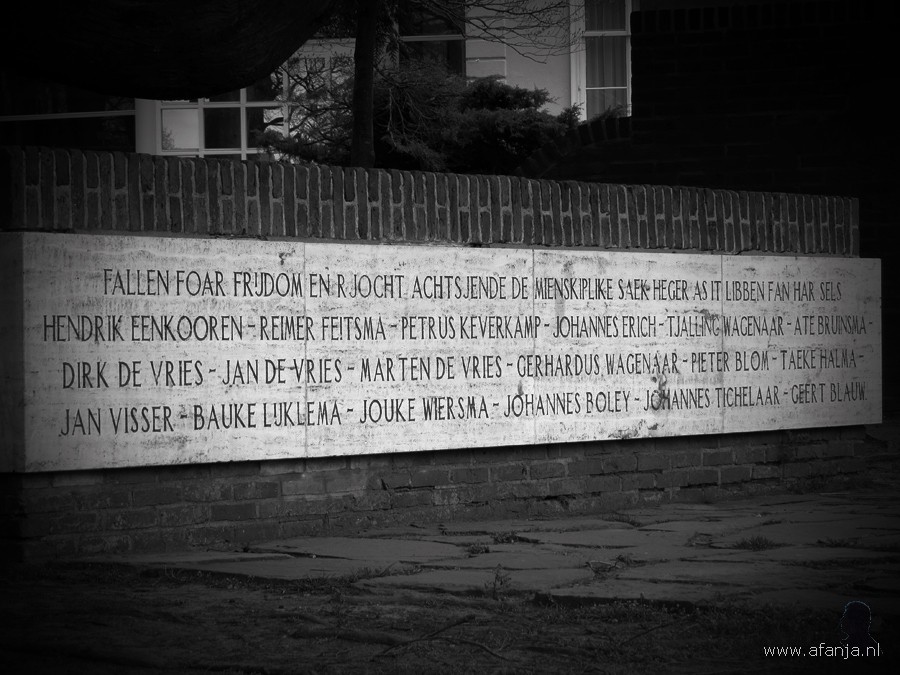 FALLEN FOAR FRIJDOM EN RJOCHT ACHTSJENDE DE MIENSKIPLIKE SAEK HEGER AS IT LIBBEN FAN HAR SELS
HENDRIK EENKOOREN - REIMER FEITSMA - PETRUS KEVERKAMP - JOHANNES ERICH - TJALLING WAGENAAR - ATE BRUINSMA -
DIRK DE VRIES - JAN DE VRIES - MARTEN DE VRIES - GERHARDUS WAGENAAR - PIETER BLOM - TAEKE HALMA -
JAN VISSER - BAUKE LIJKLEMA - JOUKE WIERSMA - JOHANNES BOLEY - JOHANNES TICHELAAR - GEERT BLAUW.
www.afanja.nl